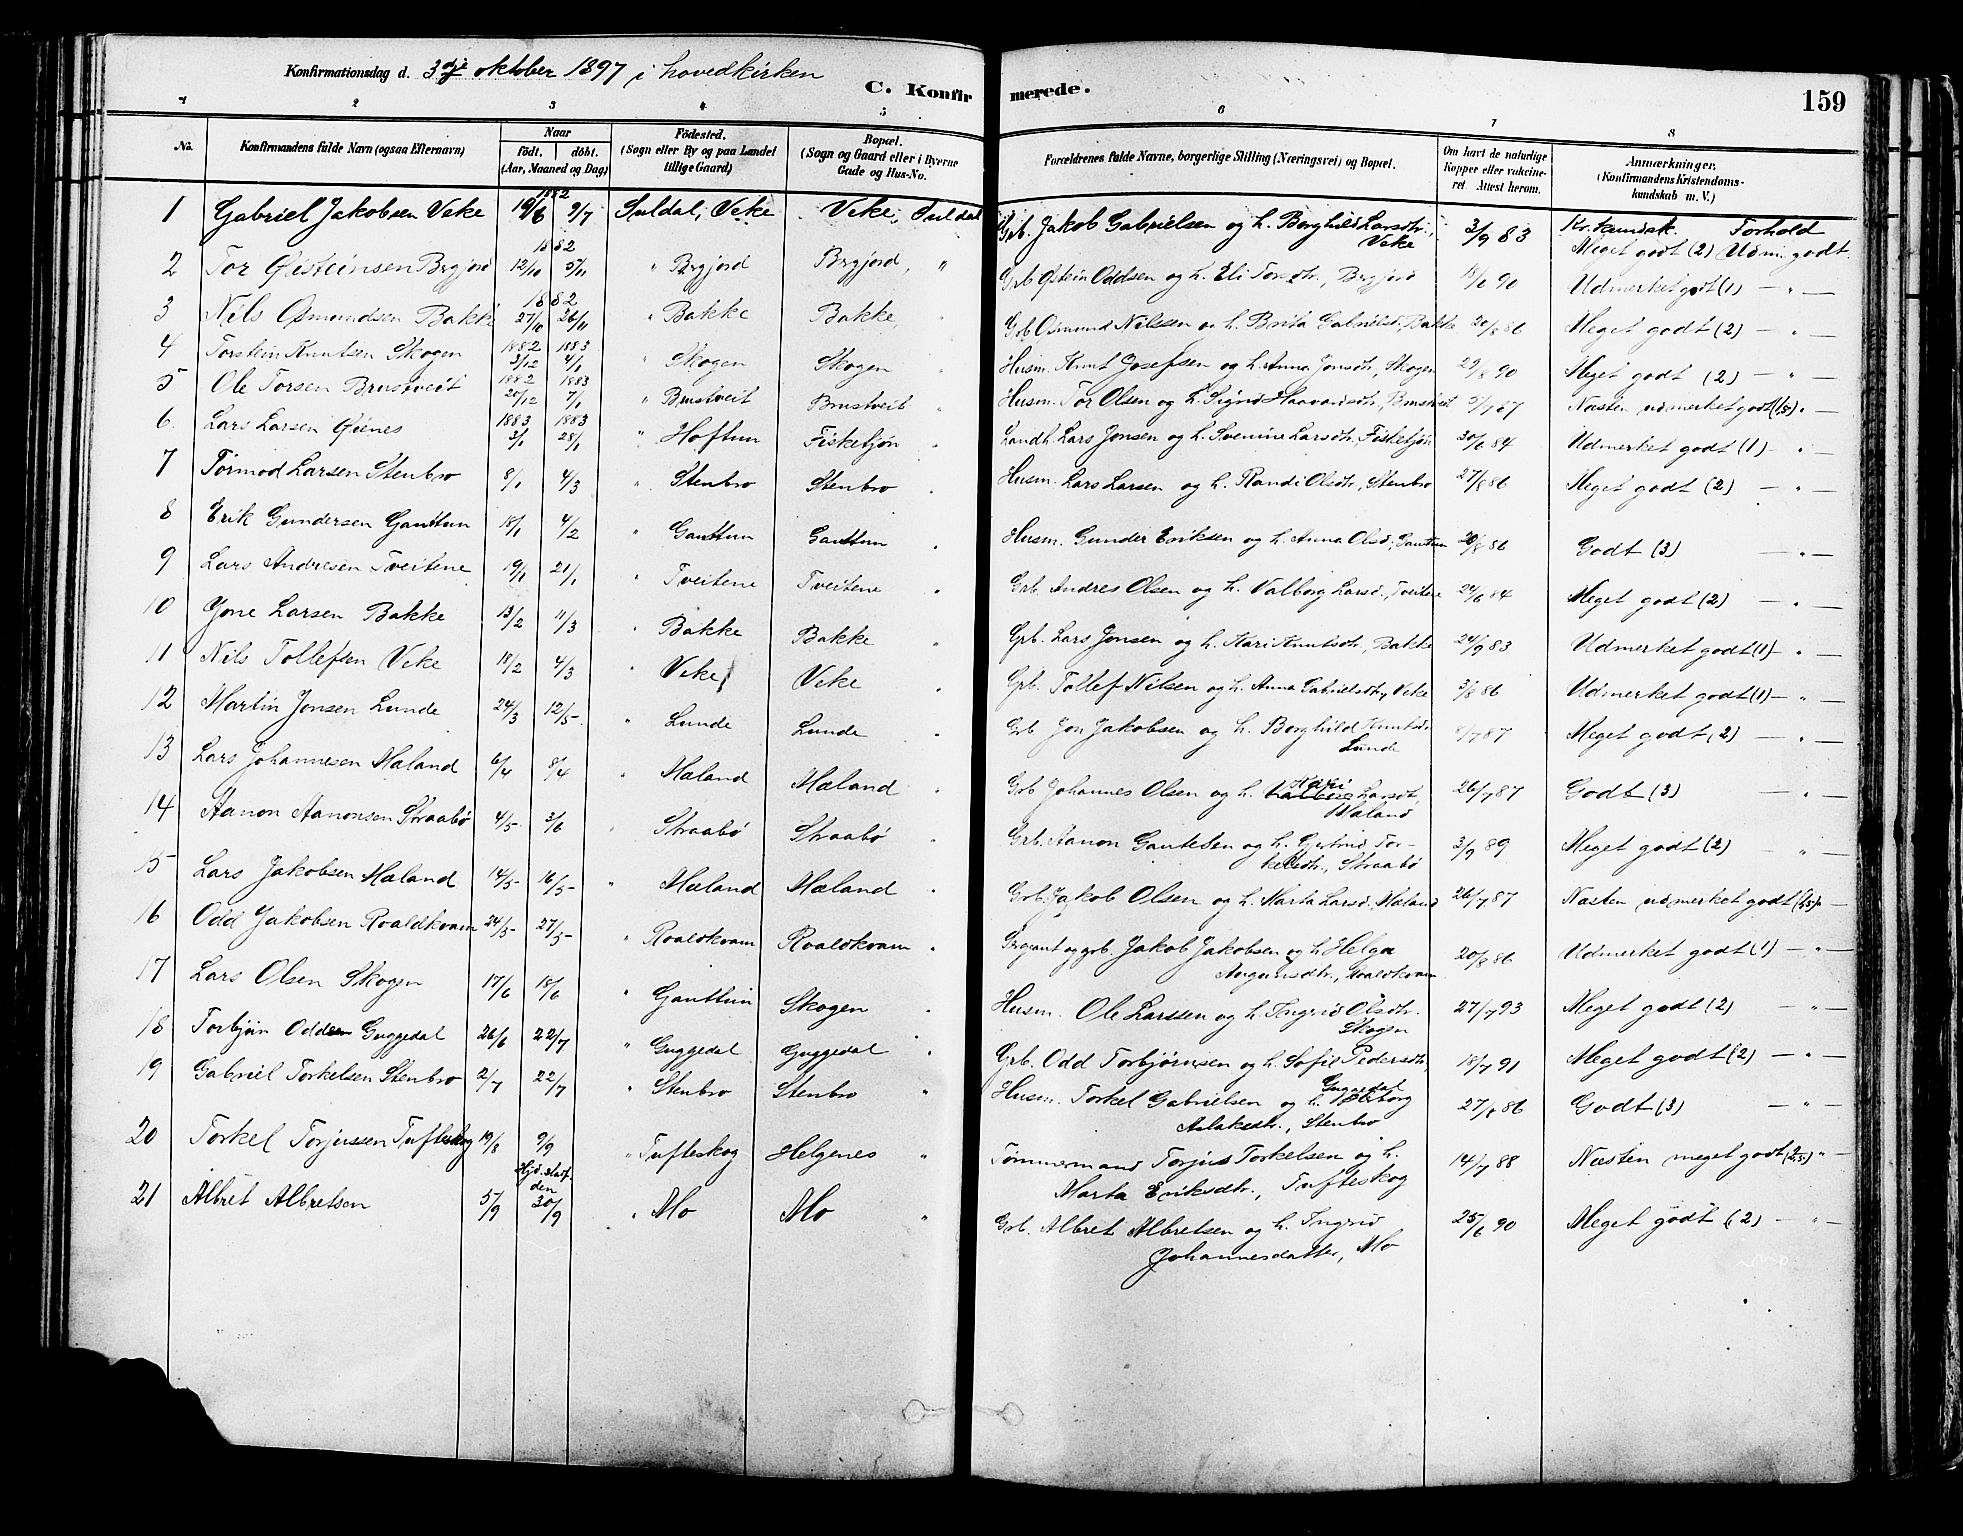 Konfirmationsdag d. 3dje oktober 1897 i hovedkirken
C. Konfirmerede.
159
1 2 3 4 5 6 7 8
No. Konfirmandens fulde Navn (ogsaa Efternavn) Naar födt. döbt. (Aar, Maaned og Dag) Födested. (Sogn eller By og paa Landet tillige Gaard) Bopæl. (Sogn og Gaard eller i Byerne Gade og Hus-No. Forældrenes fulde Navne, borgerlige Stilling (Næringsvei) og Bopæl. Om havt de naturlige Kopper eller vakcineret. Attest herom. Anmærkninger, (Konfirmandens Kristendomskundskab m. V.)
1882 Kr. kundsk. Forhold
1 Gabriel Jakobsen Veke 19/6 9/7 Suldal, Veke Veke, Suldal Grb. Jakob Gabrielsen og h. Borghild Larsdtr., Veke 3/9 83 Meget godt (2) Udm. godt.
1882
2 Tor Øisteinsen Brgjord 12/10 5/11 " Brgjord Brgjord, " Grb Østein Oddsen og h. Eli Torsdtr., Brgjord 18/6 90 Udmerket godt (1) — " —
1882
3 Nils Osmundsen Bakke 27/10 26/11 " Bakke Bakke " Grb Osmund Nilssen og h. Brita Gabrielsd., Bakke 20/8 86 Meget godt (2) — " —
1882 1883
4 Torstein Knutsen Skogen 3/12 4/1 " Skogen Skogen " Husm. Knut Josefsen og h. Anna Jonsdtr, Skogen 29/8 90 Meget godt (2) — " —
1882 1883
5 Ole Torsen Brustveit 20/12 7/1 " Brustveit Brustveit " Husm. Tor Olsen og h. Sigrid Haavardsdtr., Brustveit 5/7 87 Næsten udmerket godt (1,5) " —
1883 1883
6 Lars Larsen Øienes 3/1 28/1 " Hoftun Fisketjøn " Landh. Lars Jonsen og h. Svenine Larsdtr, Fisketjøn 30/6 84 Udmerket godt (1) — " —
7 Tormod Larsen Stenbro 8/1 4/3 " Stenbro Stenbro " Husm. Lars Larsen og h. Randi Olsdtr, Stenbro 27/8 86 Meget godt (2) — " —
8 Erik Gundersen Gauttun 18/1 4/2 " Gauttun Gauttun " Husm. Gunder Eriksen og h. Anna Olsd., Gauttun 20/8 86 Godt (3) — " —
9 Lars Andresen Tveitene 19/1 21/1 " Tveitene Tveitene " Grb. Andres Olsen og h. Valborg Larsd., Tveitene 24/6 84 Meget godt (2) — " —
10 Jone Larsen Bakke 13/2 11/3 " Bakke Bakke " Grb. Lars Jonsen og h. Kari Knutsdtr, Bakke 24/9 83 Udmerket godt (1) — " —
11 Nils Tollefsen Veke 18/2 4/3 " Veke Veke " Grb. Tollef Nilsen og h. Anna Gabrielsdtr, Veke 3/8 86 Udmerket godt (1) — " —
12 Martin Jonsen Lunde 24/3 12/5 " Lunde Lunde " Grb Jon Jakobsen og h. Borghild Knutsd. Lunde 8/7 87 Meget godt (2) — " —
13 Lars Johannesen Mæland 6/4 8/4 " Mæland Mæland " Grb Johannes Olsen og h. Kari Larsdtr, Mæland 26/7 87 Godt (3) — " —
14 Aanon Aanonsen Straabø 4/5 3/6 " Straabø Straabø " Grb. Aanon Gautesen og h. Gjertrud Torkelsdtr., Straabø 3/9 89 Meget godt (2) — " —
15 Lars Jakobsen Mæland 14/5 16/5 " Mæland Mæland " Grb. Jakob Olsen og h. Marta Larsd. Mæland 26/7 87 Næsten udmerket godt (1,5) " —
16 Odd Jakobsen Roaldkvam 24/5 27/5 " Roaldkvam Roaldkvam " Sergeant og grb. Jakob Jakobsen og h Helga Aagaansdtr., Roaldkvam 20/8 86 Udmerket godt (1) — " —
17 Lars Olsen Skogen 17/6 18/6 " Gauttun Skogen " Husm. Ole Larssen og h. Ingrid Olsdtr. Skogen 27/7 93 Meget godt (2) " —
18 Torbjørn Oddsen Guggedal 26/6 22/7 " Guggedal Guggedal " Grb. Odd Torbjørnsen og h. Sofie Pedersdtr, Guggedal 18/7 91 Meget godt (2) — " —
19 Gabriel Torkelsen Stenbro 2/7 22/7 " Stenbro Stenbro " Husm. Torkel Gabrielsen og h. Valborg Aslaksdtr., Stenbro 27/8 86 Godt (3) — " —
20 Torkel Torjussen Tufteskog 19/8 9/9 " Tufteskog Helgenes " Tømmermand Torjus Torkelsen og h. Marta Eriksdtr., Tufteskog 14/7 88 Næsten meget godt (2,5) " —
Hjd. stadf. den
21 Albret Albretsen 5/9 30/9 " Mo Mo " Grb. Albret Albretsen og h. Ingrid Johannesdatter, Mo 25/6 90 Meget godt (2) — " —